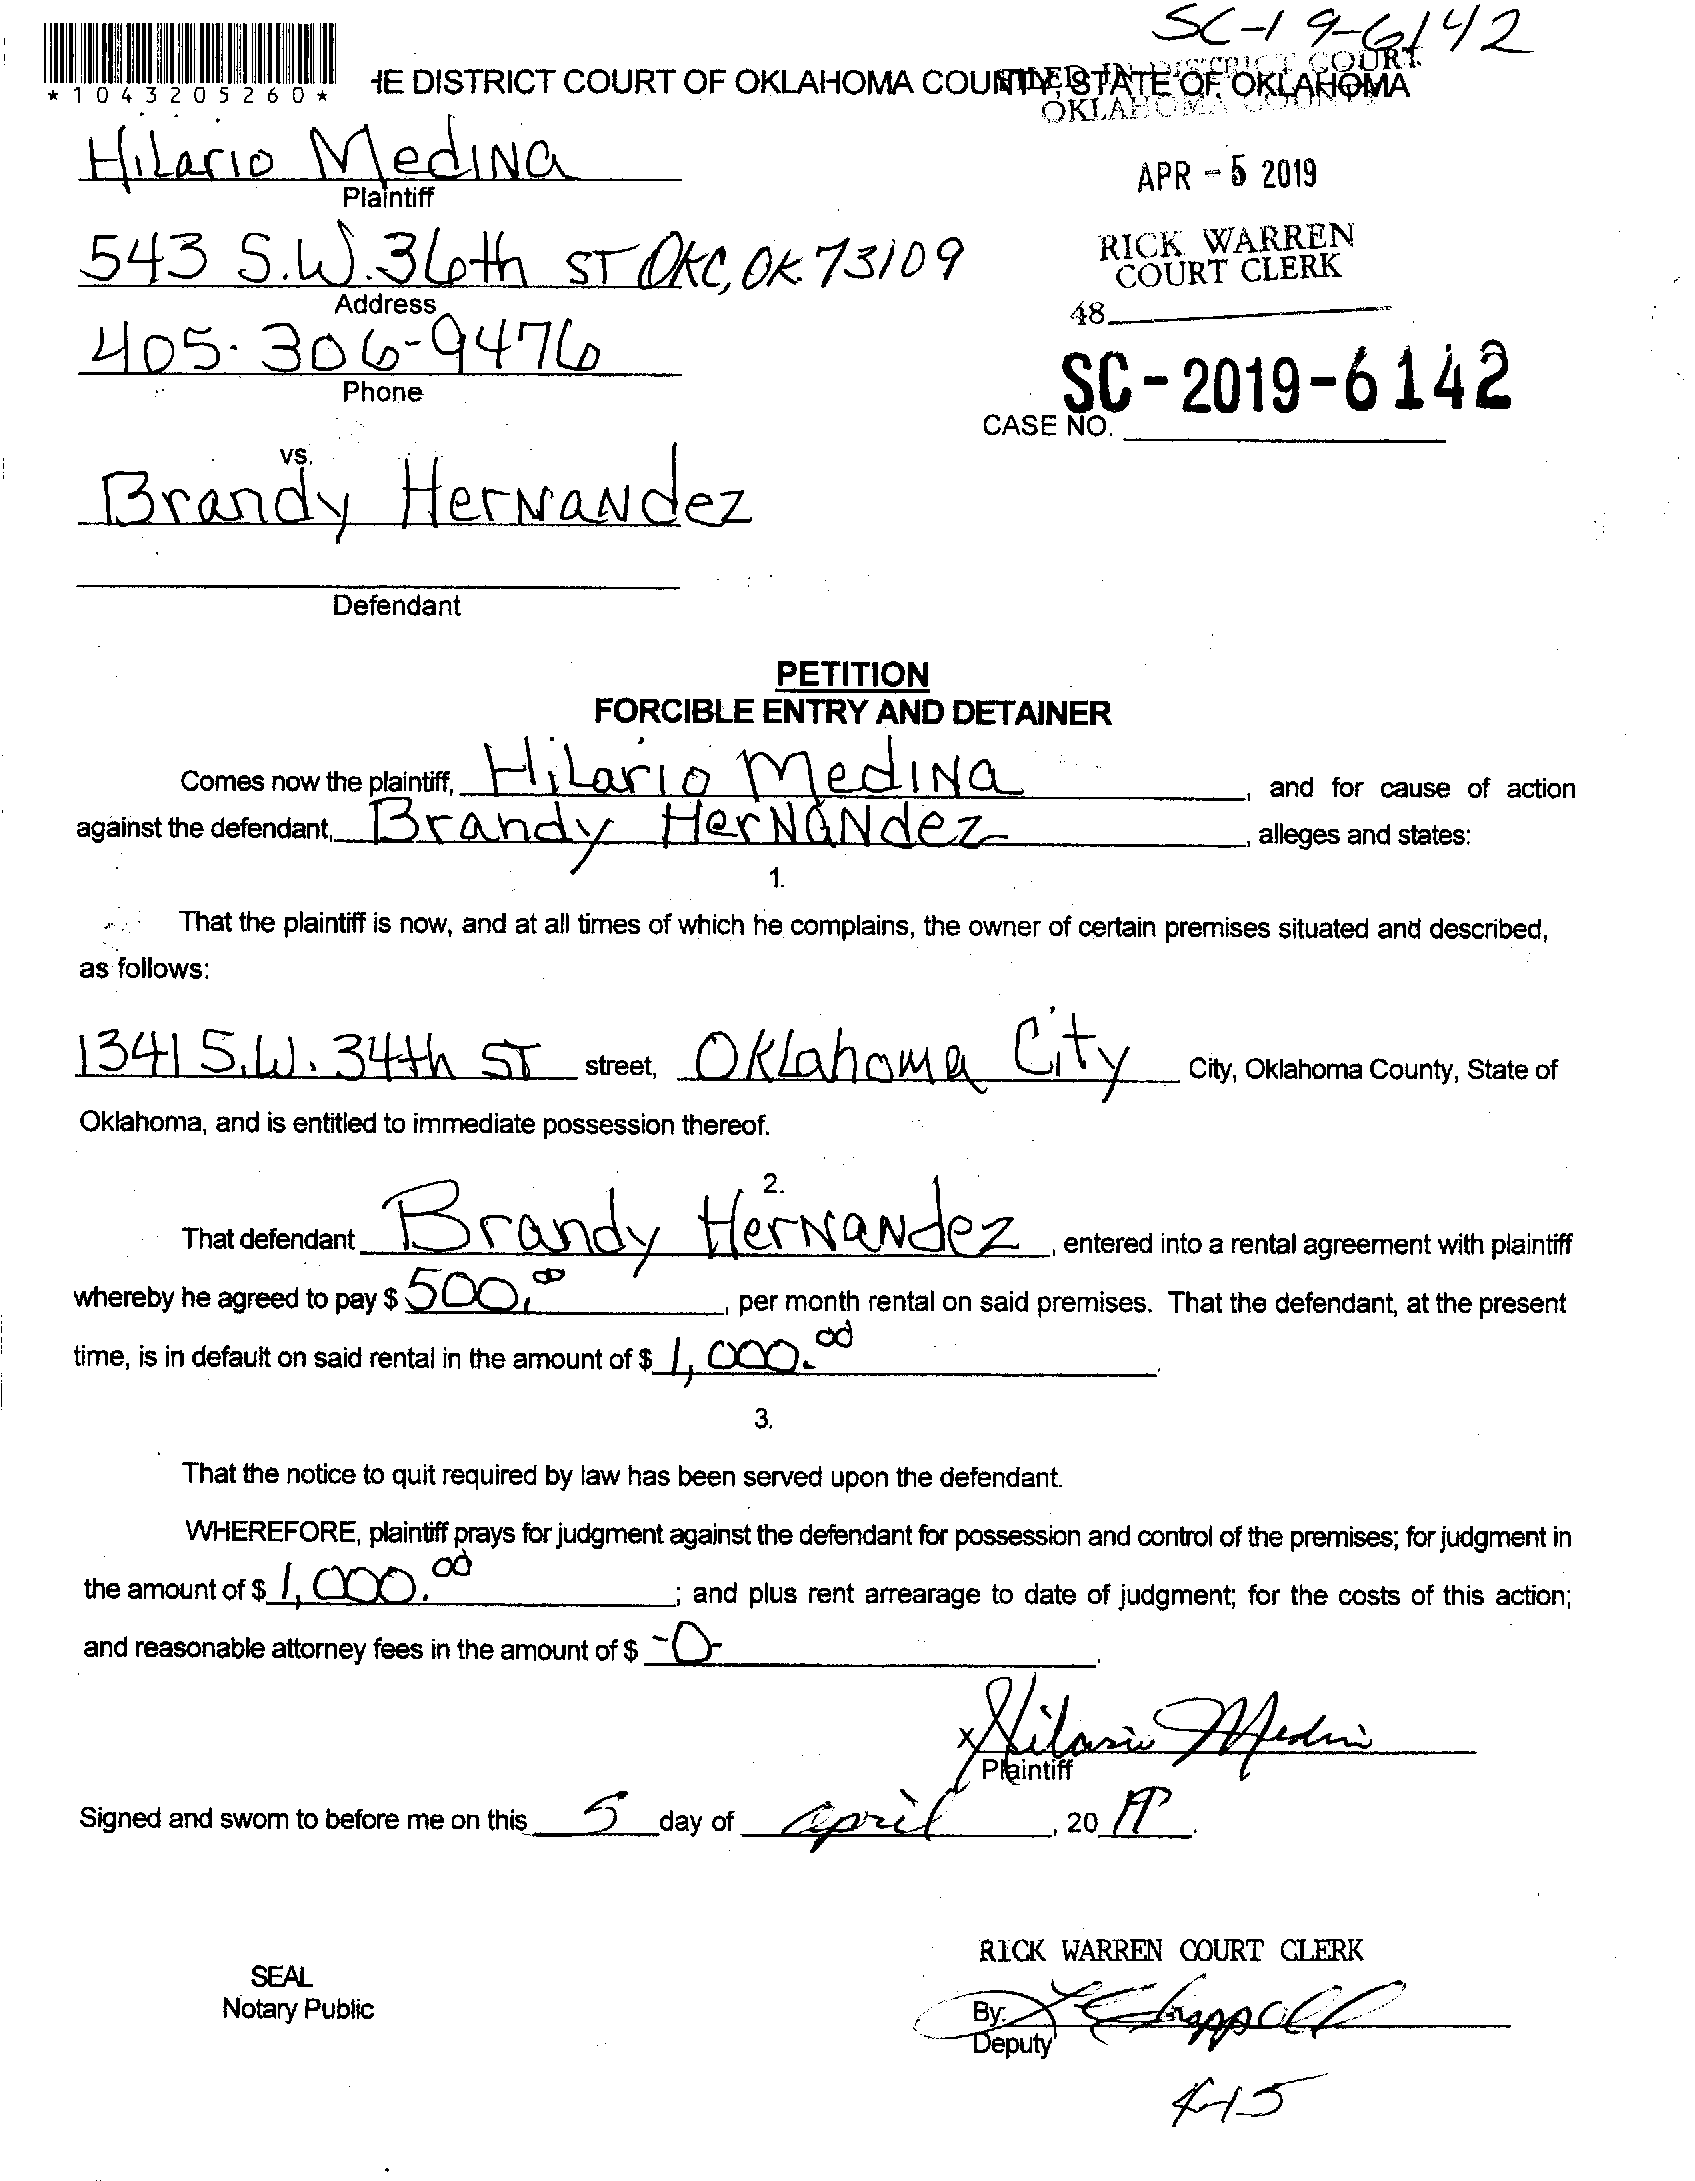 SC-19-6142
*1043205260*
HE DISTRICT COURT OF OKLAHOMA COUNTY, STATE OF OKLAHOMA
FILED IN DISTRICT COURT
OKLAHOMA COUNTY
Hilario Medina
Plaintiff
APR - 5 2019
543 S.W. 36th ST OKC, OK 73109
Address
RICK WARREN
COURT CLERK
48
405-306-9476
Phone
SC-2019-6142
CASE NO.
vs.
Brandy Hernandez
Defendant
PETITION
FORCIBLE ENTRY AND DETAINER
Comes now the plaintiff, Hilario Medina, and for cause of action
against the defendant, Brandy Hernandez, alleges and states:
1.
That the plaintiff is now, and at all times of which he complains, the owner of certain premises situated and described,
as follows:
1341 S.W. 34th ST street, Oklahoma City City, Oklahoma County, State of
Oklahoma, and is entitled to immediate possession thereof.
2.
That defendant Brandy Hernandez, entered into a rental agreement with plaintiff
whereby he agreed to pay $ 500.00, per month rental on said premises. That the defendant, at the present
time, is in default on said rental in the amount of $ 1,000.00.
3.
That the notice to quit required by law has been served upon the defendant.
WHEREFORE, plaintiff prays for judgment against the defendant for possession and control of the premises; for judgment in
the amount of $ 1,000.00; and plus rent arrearage to date of judgment; for the costs of this action;
and reasonable attorney fees in the amount of $ -0-.
x Hilario Medina
Plaintiff
Signed and sworn to before me on this 5 day of april, 2019.
RICK WARREN COURT CLERK
SEAL
Notary Public
By:
Deputy